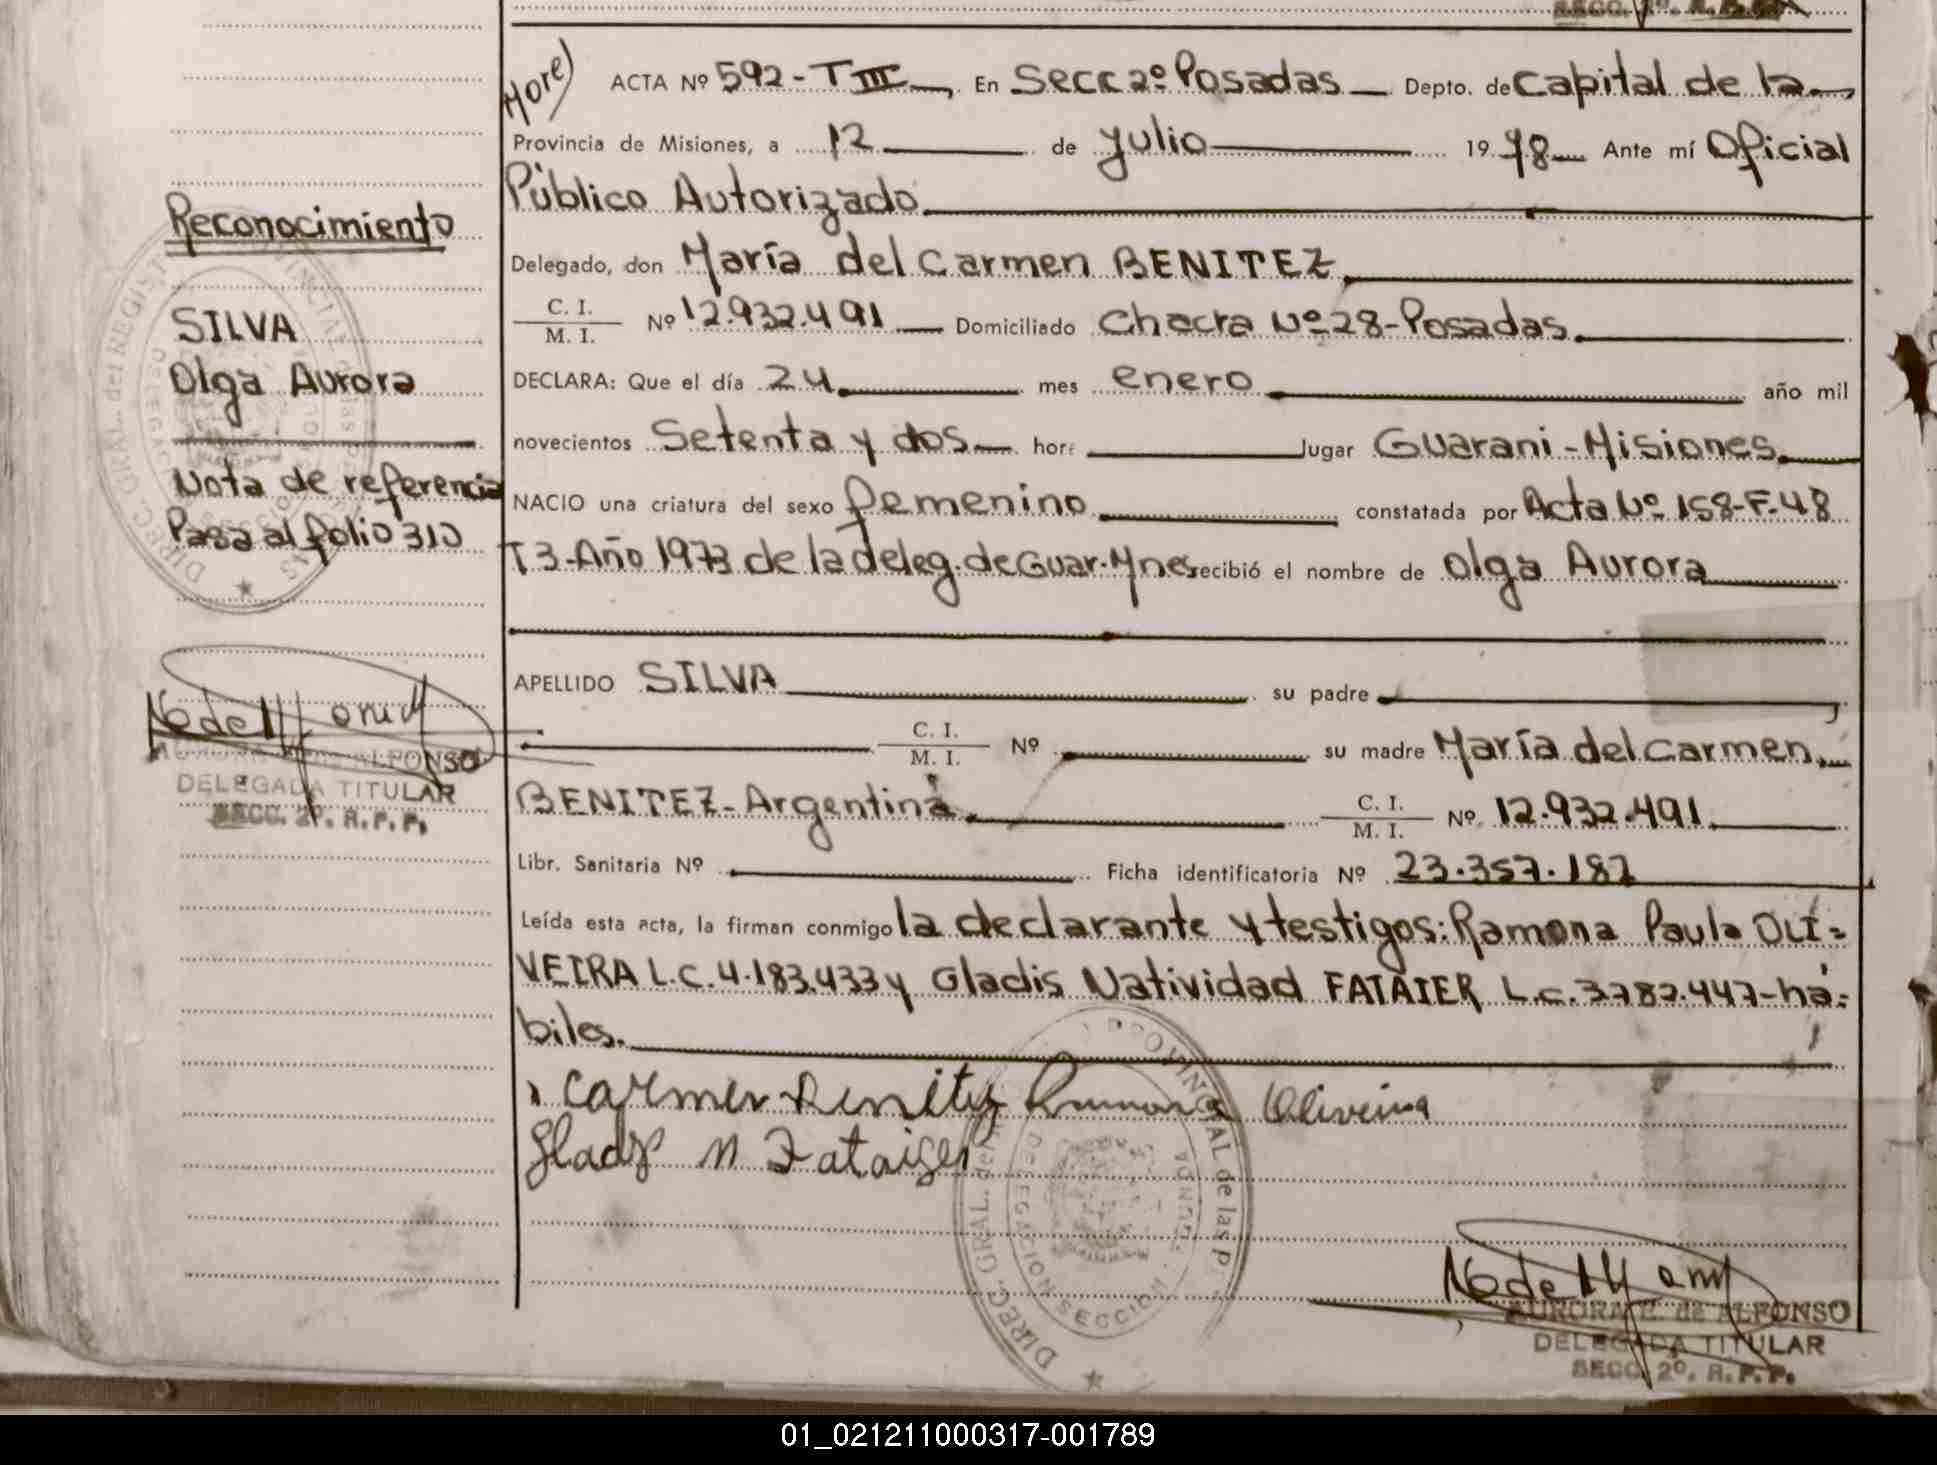 SECC. 2º. R.P.P.
More)
ACTA Nº 592-TIII En Secc 2º Posadas Depto. de Capital de la
Provincia de Misiones, a 12 de julio 1978 Ante mí Oficial
Público Autorizado
Delegado, don María del Carmen BENITEZ
C. I.
M. I. Nº 12.932.491 Domiciliado Chacra Nº 28-Posadas
DECLARA: Que el día 24 mes enero año mil
novecientos Setenta y dos hora lugar Guarani-Misiones
NACIO una criatura del sexo femenino constatada por Acta Nº 158-F.48
T3-Año 1973 de la deleg. de Guar. Mnes recibió el nombre de Olga Aurora
APELLIDO SILVA su padre
C. I.
M. I. Nº su madre María del Carmen
BENITEZ-Argentina C. I.
M. I. Nº 12.932.491
Libr. Sanitaria Nº Ficha identificatoria Nº 23.357.187
Leída esta acta, la firman conmigo la declarante y testigos: Ramona Paula OLI=
VEIRA L.C. 4.183.433 y Gladis Natividad FATAIER L.C. 3787.447-há=
biles.
Carmen Benitez Ramona Oliveira
Gladys N Fataiger
Reconocimiento
SILVA
Olga Aurora
Nota de referencia
Pasa al folio 310
DELEGADA TITULAR
SECC. 2º. R.P.P.
DIREC. GRAL. del REGIST
DIREC. GRAL. del
PROVINCIAL de las P
DELEGACION SECCION SEGUNDA
AURORA E. de ALFONSO
DELEGADA TITULAR
SECC. 2º. R.P.P.
01_021211000317-001789